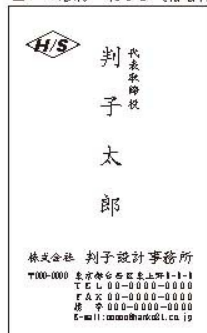 H/S
代表取締役
判子太郎
株式会社 判子設計事務所
〒000-0000 東京都台東区東上野1-1-1
TEL 00-0000-0000
FAX 00-0000-0000
携帯 000-0000-0000